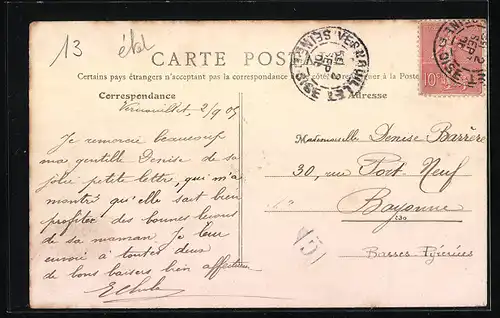 13
CARTE POSTALE
Certains pays étrangers n'acceptant pas la correspondance au côté, se renseigner à la Poste
Correspondance
Adresse
Vernouillet, 2/9 05
Je remercie beaucoup
ma gentille Denise de sa
jolie petite lettre, qui m'a
montré qu'elle sait bien
profiter des bonnes leçons
de sa maman. Je leur
envoie à toutes deux
de bons baisers bien affectueux
Mademoiselle Denise Barrère
30, rue Port-Neuf
Bayonne
Basses-Pyrénées
VERNOUILLET
SEINE-&-OISE
SEINE-&-OISE
10